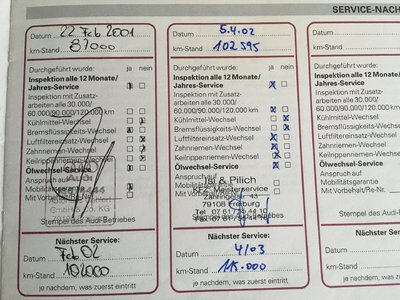 SERVICE-NACH
Datum 22 Feb 2001
km-Stand 87000
Durchgeführt wurde: ja nein
Inspektion alle 12 Monate/
Jahres-Service
Inspektion mit Zusatz-
arbeiten alle 30.000/
60.000/90.000/120.000 km
Kühlmittel-Wechsel
Bremsflüssigkeits-Wechsel
Luftfiltereinsatz-Wechsel
Zahnriemen-Wechsel
Keilrippenriemen-Wechsel
Ölwechsel-Service
Anspruch auf
Mobilitäts
Mit Vorbehalt
Stempel des Audi-Betriebes
Nächster Service:
Datum Feb 02
km-Stand 102000
je nachdem, was zuerst eintritt
Datum 5.4.02
km-Stand 102595
Durchgeführt wurde: ja nein
Inspektion alle 12 Monate/
Jahres-Service
Inspektion mit Zusatz-
arbeiten alle 30.000/
60.000/90.000/120.000 km
Kühlmittel-Wechsel
Bremsflüssigkeits-Wechsel
Luftfiltereinsatz-Wechsel
Zahnriemen-Wechsel
Keilrippenriemen-Wechsel
Ölwechsel-Service
Anspruch auf
& Pilich
Kfz Meisterservice
79108 Freiburg
Stempel des
Nächster Service:
Datum 4/03
km-Stand
je nachdem, was zuerst eintritt
Datum
km-Stand
Durchgeführt wurde:
Inspektion alle 12 Mona
Jahres-Service
Inspektion mit Zusatz-
arbeiten alle 30.000/
60.000/90.000/120.000
Kühlmittel-Wechsel
Bremsflüssigkeits-Wech
Luftfiltereinsatz-Wechse
Zahnriemen-Wechsel
Keilrippenriemen-Wechs
Ölwechsel-Service
Anspruch auf
Mobilitätsgarantie
Mit Vorbehalt/Re-Nr.
Stempel des Audi-
Nächster Ser
Datum
km-Stand
je nachdem, was zue